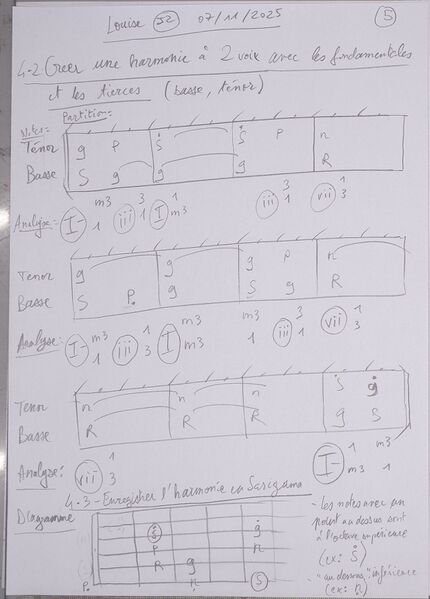 Louise 52 07/11/2025 5
4-2. Créer une harmonie à 2 voix avec les fondamentales
et les tierces (basse, ténor)
Partition:
Notes:
Ténor g P Ṡ Ṡ P n
Basse S g g g R
Analyse: I- m3 1 iii 3 1 I- 1 m3 iii 3 1 vii 1 3
Tenor g g g P n
Basse S P g S g R
Analyse: I- m3 1 iii 1 3 I- m3 m3 1 iii 3 1 vii 1 3
Tenor n n n Ṡ ġ
Basse R R R g S
Analyse: vii 1 3 I- 1 m3 m3 1
4-3- Enregistrer l'harmonie en Sargama
Diagramme
Ṡ ġ
P n
R g
P n S
- les notes avec un
point au dessus sont
à l'octave supérieure
(ex: Ṡ)
- "au dessous," inférieure
(ex: n)